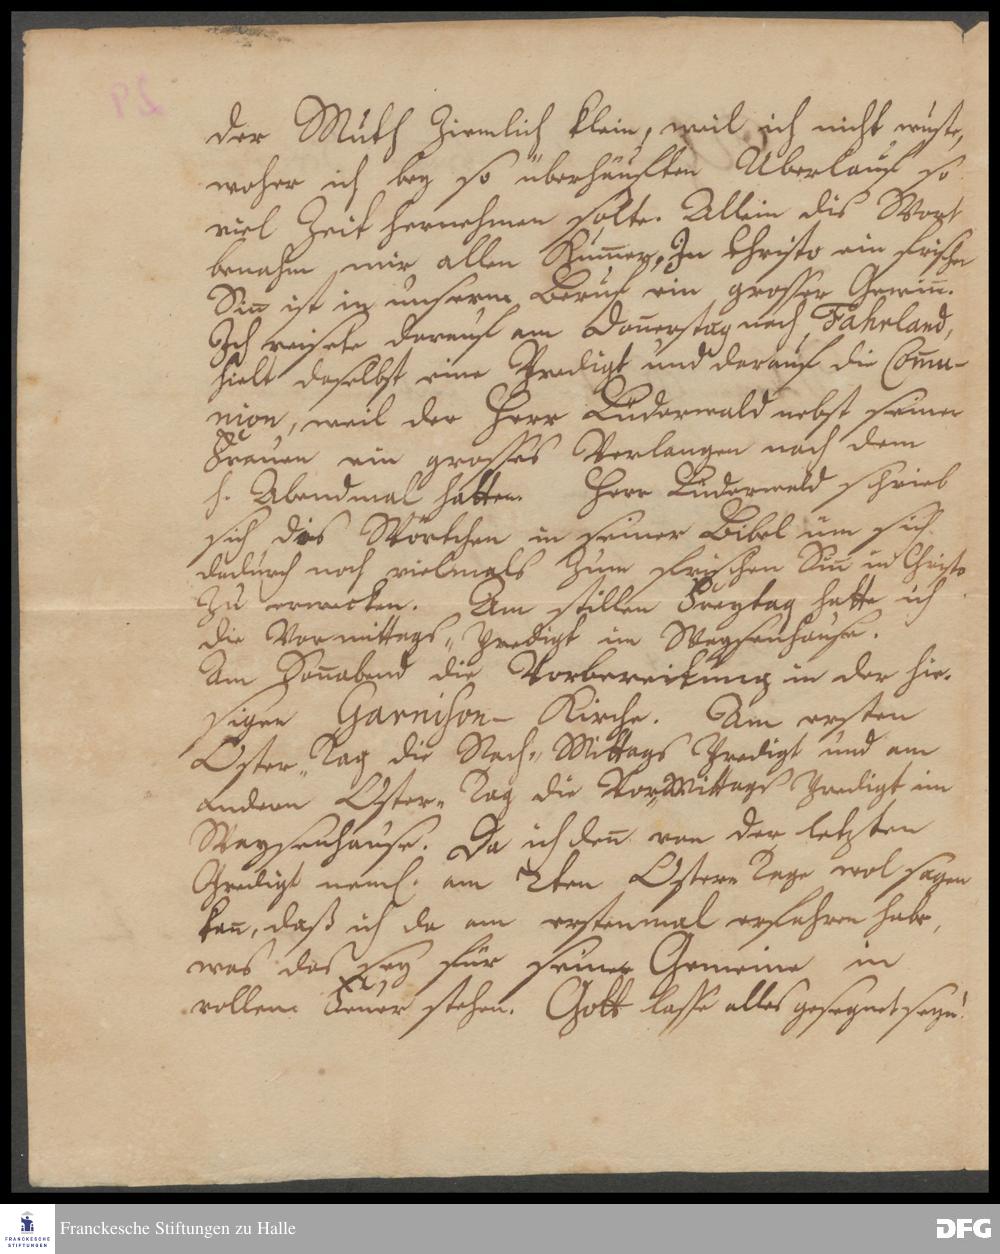 der Muth ziemlich klein, weil ich nicht wuste,
woher ich bey so überhäuften Uberlauf so
viel Zeit hernehmen solte. Allein dis Wort
benahm mir allen Kum̅er, In Christo ein frischer
Sin̅ ist in unserm Beruf ein grosser Gewin̅.
Ich reisete darauf am Don̅erstag nach Fahrland,
hielt daselbst eine Predigt und darauf die Com̅u-
nion, weil der Herr Lüderwald nebst seiner
Frauen ein grosses Verlangen nach dem
h. Abendmal hatten. Herr Lüderwald schrieb
sich dis Wörtchen in seiner Bibel um sich
dadurch noch vielmals zum frischen Sin̅ in Christo
zu erwecken. Am stillen Freytag hatte ich
die Vormittags-Predigt im Waysenhause.
Am Son̅abend die Vorbereitung in der hie-
sigen Garnison- Kirche. Am ersten
Oster-Tag die Nach-Mittags Predigt und am
andern Oster-Tag die Vor-Mittags Predigt im
Waysenhause. Da ich den̅ von der letzten
Predigt neml. am 2ten Oster-Tage wol sagen
kan̅, daß ich da am erstenmal erfahren habe,
was das sey für seiner Gemeine in
vollem Feuer stehen. Gott lasse alles gesegnet seyn!
Franckesche Stiftungen zu Halle
FRANCKESCHE
STIFTUNGEN
DFG